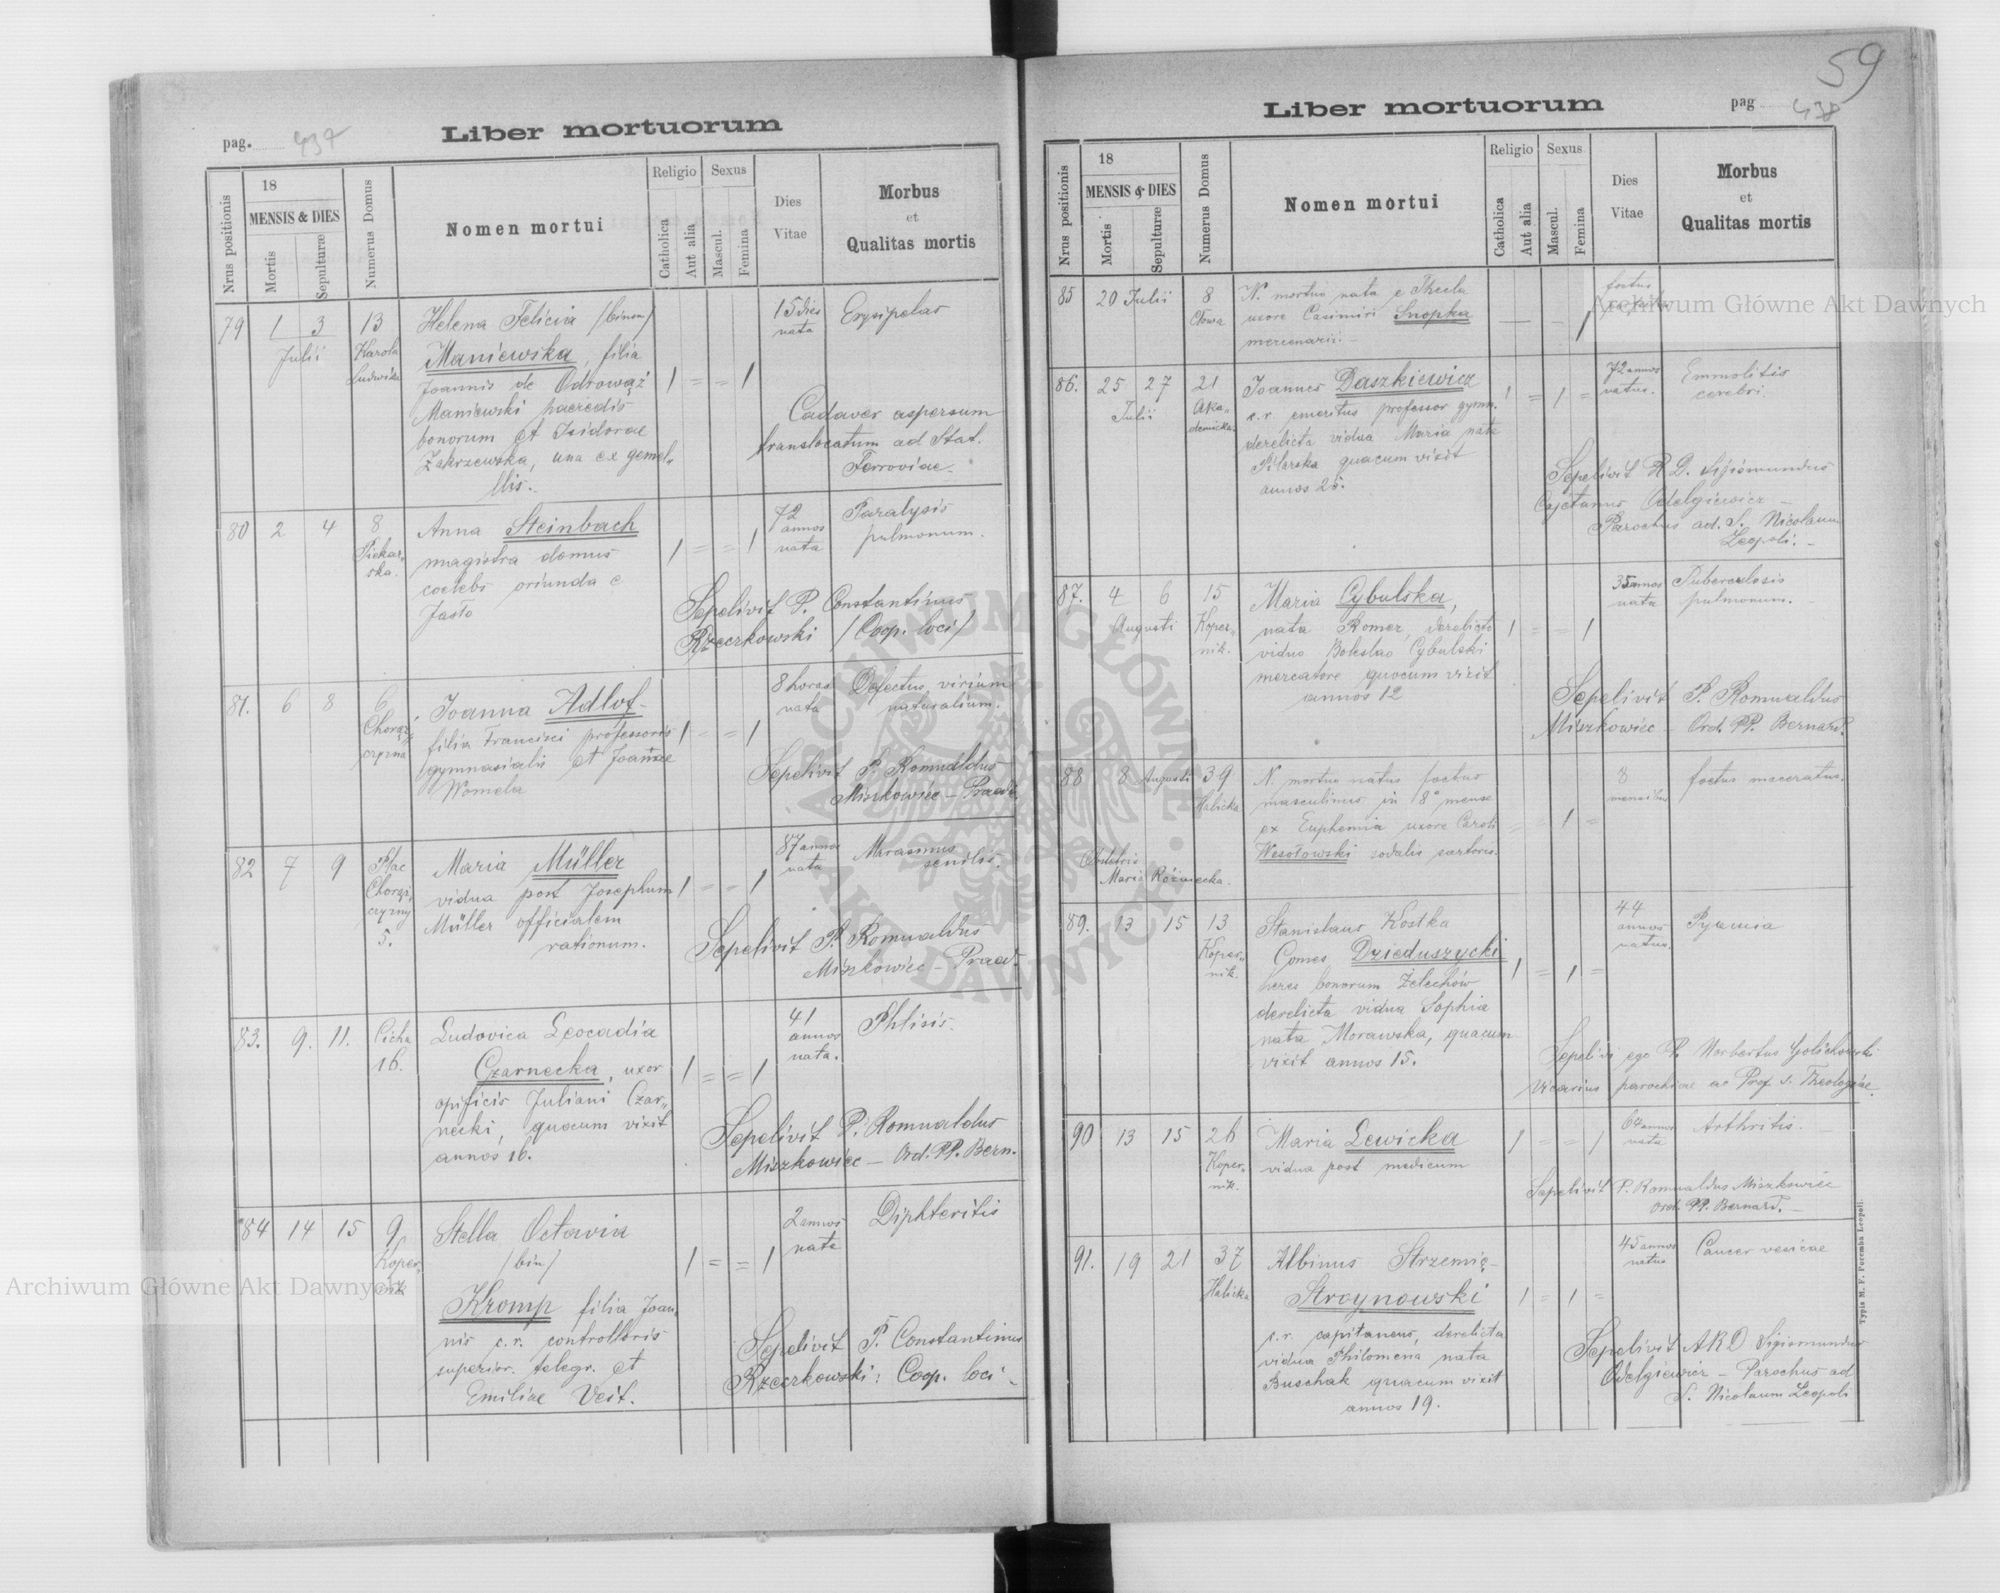 59
pag. 437
Liber mortuorum
Nrus positionis
18
MENSIS & DIES
Mortis
Sepulturæ
Numerus Domus
Nomen mortui
Religio
Catholica
Aut alia
Sexus
Mascul.
Femina
Dies
Vitae
Morbus
et
Qualitas mortis
79 1 3 Julii 13 Karola Ludwika
Helena Felicia /binom/
Maniewska, filia
Joannis de Odrowąż
Maniewski haeredis
bonorum et Isidorae
Zakrzewska, una ex gemel-
llis.
1 = = 1
15 dies
nata
Erysipelas
Cadaver aspersum
translocatum ad Stat.
Ferroviae.
80 2 4 8 Piekarska.
Anna Steinbach
magistra domus
coelebs oriunda e
Jasło
1 = = 1
72
annos
nata
Paralysis
pulmonum.
Sepelivit P. Constantinus
Rzeczkowski /Coop. loci/
81. 6 8 6 Chorążczyzna
Joanna Adlof
filia Francisci professoris
gymnasialis et Joannae
Womela
1 = = 1
8 horas
nata
Defectus virium
naturalium.
Sepelivit P. Romualdus
Miszkowiec – Praed.
82 7 9 Plac
Chorążczyzny
5.
Maria Müller
vidua post Josephum
Müller officialem
rationum.
1 = = 1
87 annos
nata
Marasmus
senilis.
Sepelivit P. Romualdus
Miszkowiec – Praed.
83. 9. 11. Cicha
16.
Ludovica Leocadia
Czarnecka, uxor
opificis Juliani Czar-
necki, quacum vixit
annos 16.
1 = = 1
41
annos
nata.
Phtisis.
Sepelivit P. Romualdus
Miszkowiec – Ord. PP. Bern.
84 14 15 9 Kopernik
Stella Octavia
/bin/
Kromp filia Joan-
nis c.r. controlloris
superior. telegr. et
Emiliae Veit.
1 = = 1
2 annos
nata
Diphteritis
Sepelivit P. Constantinus
Rzeczkowski: Coop. loci
pag 438
Liber mortuorum
Nrus positionis
18
MENSIS & DIES
Mortis
Sepulturæ
Numerus Domus
Nomen mortui
Religio
Catholica
Aut alia
Sexus
Mascul.
Femina
Dies
Vitae
Morbus
et
Qualitas mortis
85 20 Julii 8
N. mortua nata e Thecla
uxore Casimiri Snopka
mercenarii.
1
foetus
86. 25 27 Julii 21 Akademicka.
Joannes Daszkiewicz
c.r. emeritus professor gymn.
derelicta vidua Maria nata
Pilarska quacum vixit
annos 25.
1 = 1 =
72 annos
natus.
Emmolitis
cerebri.
Sepelivit R. D. Sigismundus
Cajetanus Odelgiewicz
Parochus ad S. Nicolaum
Leopoli. –
87. 4 6 Augusti 15 Kopernik.
Maria Cybulska,
nata Romer, derelicto
viduo Boleslao Cybulski
mercatore quocum vixit
annos 12
1 = = 1
35 annos
nata
Tuberculosis
pulmonum.
Sepelivit P. Romualdus
Miszkowiec – Ord. PP. Bernard.
88 8 Augusti 39 Halicka
N. mortuo natus foetus
masculinus in 8º mense
ex Euphemia uxore Caroli
Wesołowski sodalis sartoris.
= = 1 =
8
mensibus
foetus maceratus.
Obstetrix
Maria
89. 13 15 13 Kopernik.
Stanislaus Kostka
Comes Dzieduszycki
heres bonorum Żelechów
derelicta vidua Sophia
nata Morawska, quacum
vixit annos 15.
1 = 1 =
44
annos
natus.
Pyaemia
Sepelivi ego P. Norbertus Golichowski
Vicarius parochiae ac Prof. s. Theologiae.
90 13 15 26 Kopernik.
Maria Lewicka
vidua post medicum
1 = = 1
annos
nata
Arthritis.
Sepelivit P. Romualdus Miszkowiec
Ord. PP. Bernard. –
91. 19 21 37 Halicka
Albinus Strzemię-
Stroynowski
c.r. capitaneus, derelicta
vidua Philomena nata
Buschak quacum vixit
annos 19.
1 = 1 =
45 annos
natus
Cancer vesicae
Sepelivit ARD Sigismundus
Odelgiewicz – Parochus ad
S. Nicolaum Leopoli
Typis M. F. Poremba Leopoli.
Archiwum Główne Akt Dawnych
Archiwum Główne Akt Dawnych
ARCHIWUM GŁÓWNE · AKT DAWNYCH ·